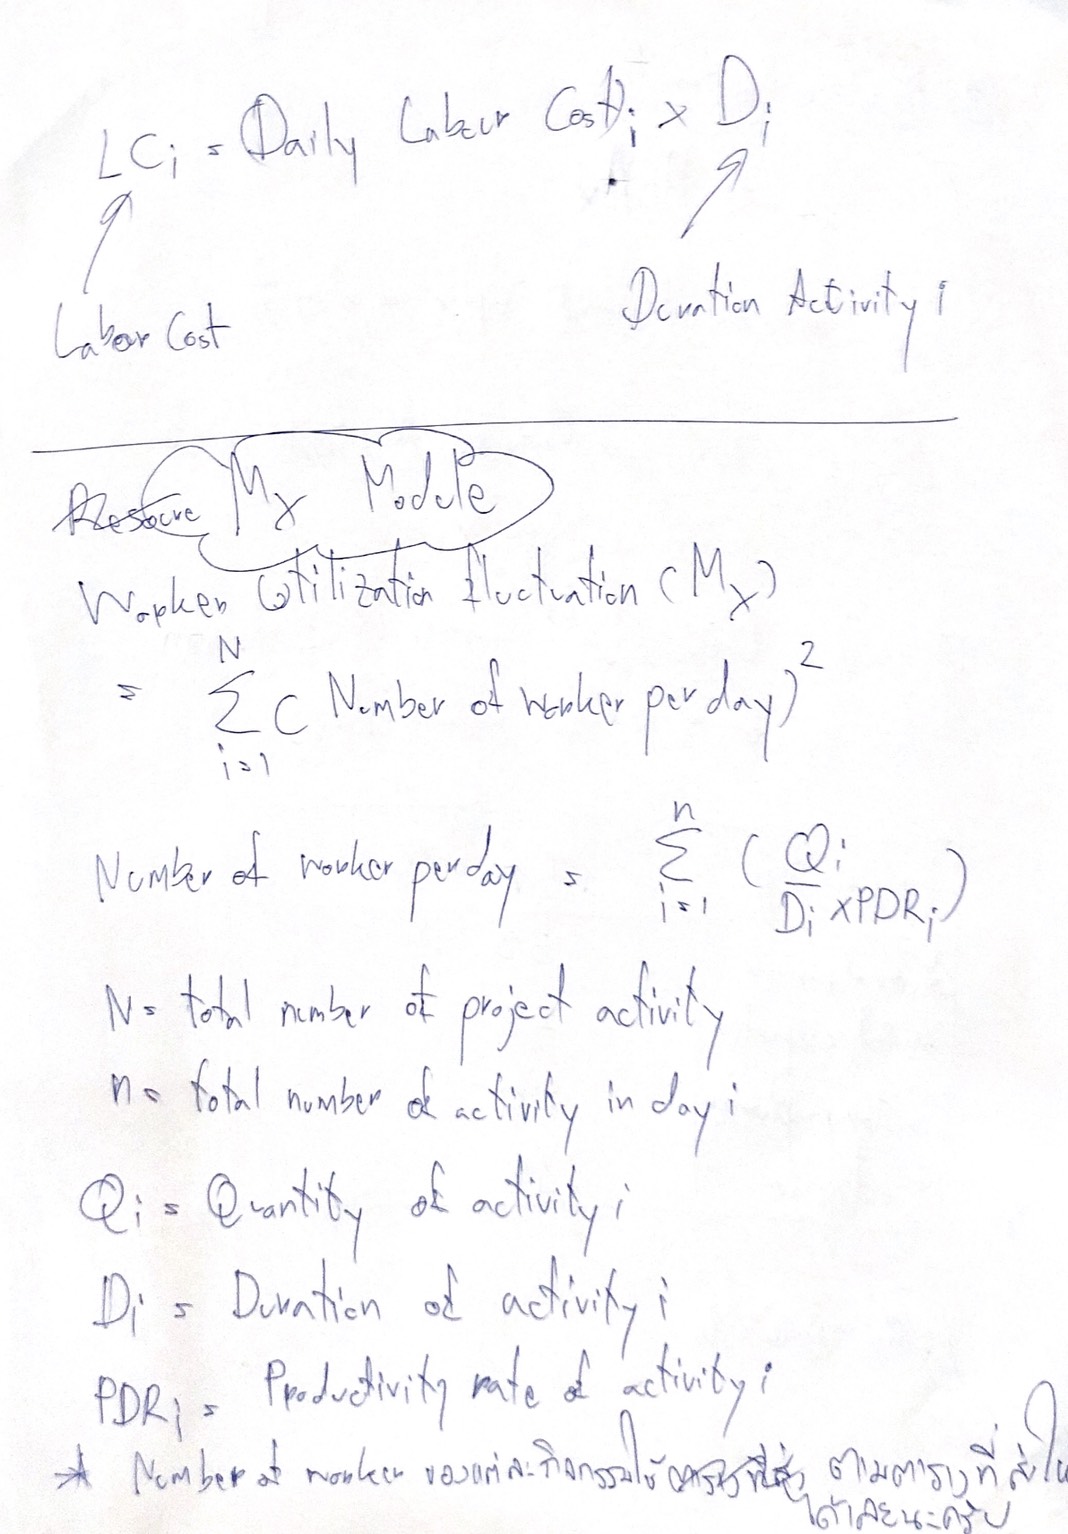 LCi = Daily Labour Costi × Di
Labour Cost
Duration Activity i
Mx Module
Worker Utilization fluctuation (Mx)
= N Σ i=1 ( Number of worker per day)²
Number of worker per day = n Σ i=1 ( Qi / Di × PDRi )
N = total number of project activity
n = total number of activity in day i
Qi = Quantity of activity i
Di = Duration of activity i
PDRi = Productivity rate of activity i
* Number of worker ของแต่ละกิจกรรมใช้ ตามตารางที่ส่งให้
ได้เลยนะครับ